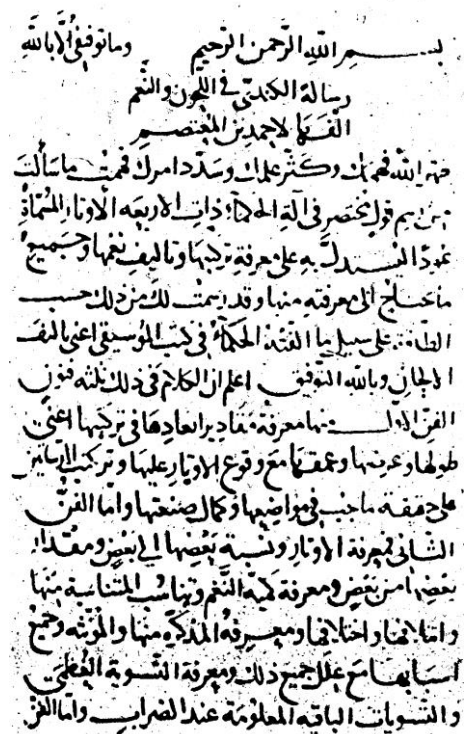 بسم الله الرحمن الرحيم وما توفيقي الا بالله
رسالة الكندي في اللحون والنغم
الفها لاحمد بن المعتصم
الله فهمك وكثر علمك وسدد امرك فهمت ما سألت
من رسم قول مختصر في آلة الحكماء ذات الاربعه الاوتار المسماة
عودا ليستدل به على معرفة تركيبها وتاليف نغمها وجميع
ما يحتاج الى معرفته منها وقد رسمت لك من ذلك حسب
الطاقة على سبيل ما الفته الحكماء في كتب الموسيقى اعني تاليف
الالحان وبالله التوفيق اعلم ان الكلام في ذلك ثلثه فنون
الفن الاول منها معرفة مقادير ابعادها في تركيبها اعني
طولها وعرضها وعمقها مع وقوع الاوتار عليها وتركيب الدساتين
على حقيقة ما يجب في مواضعها وكمال صنعتها واما الفن
الثاني فمعرفة الاوتار ونسبة بعضها الى بعض ومقدار
بعضها من بعض ومعرفة كمية النغم وتناسب المتناسبة منها
واتفاقها واختلافها ومعرفة المذكره منها والمؤنثه وجميع
اسبابها مع علل جميع ذلك ومعرفة التسوية العظمى
والتسويات الباقيه المعلومة عند الضراب واما الفن